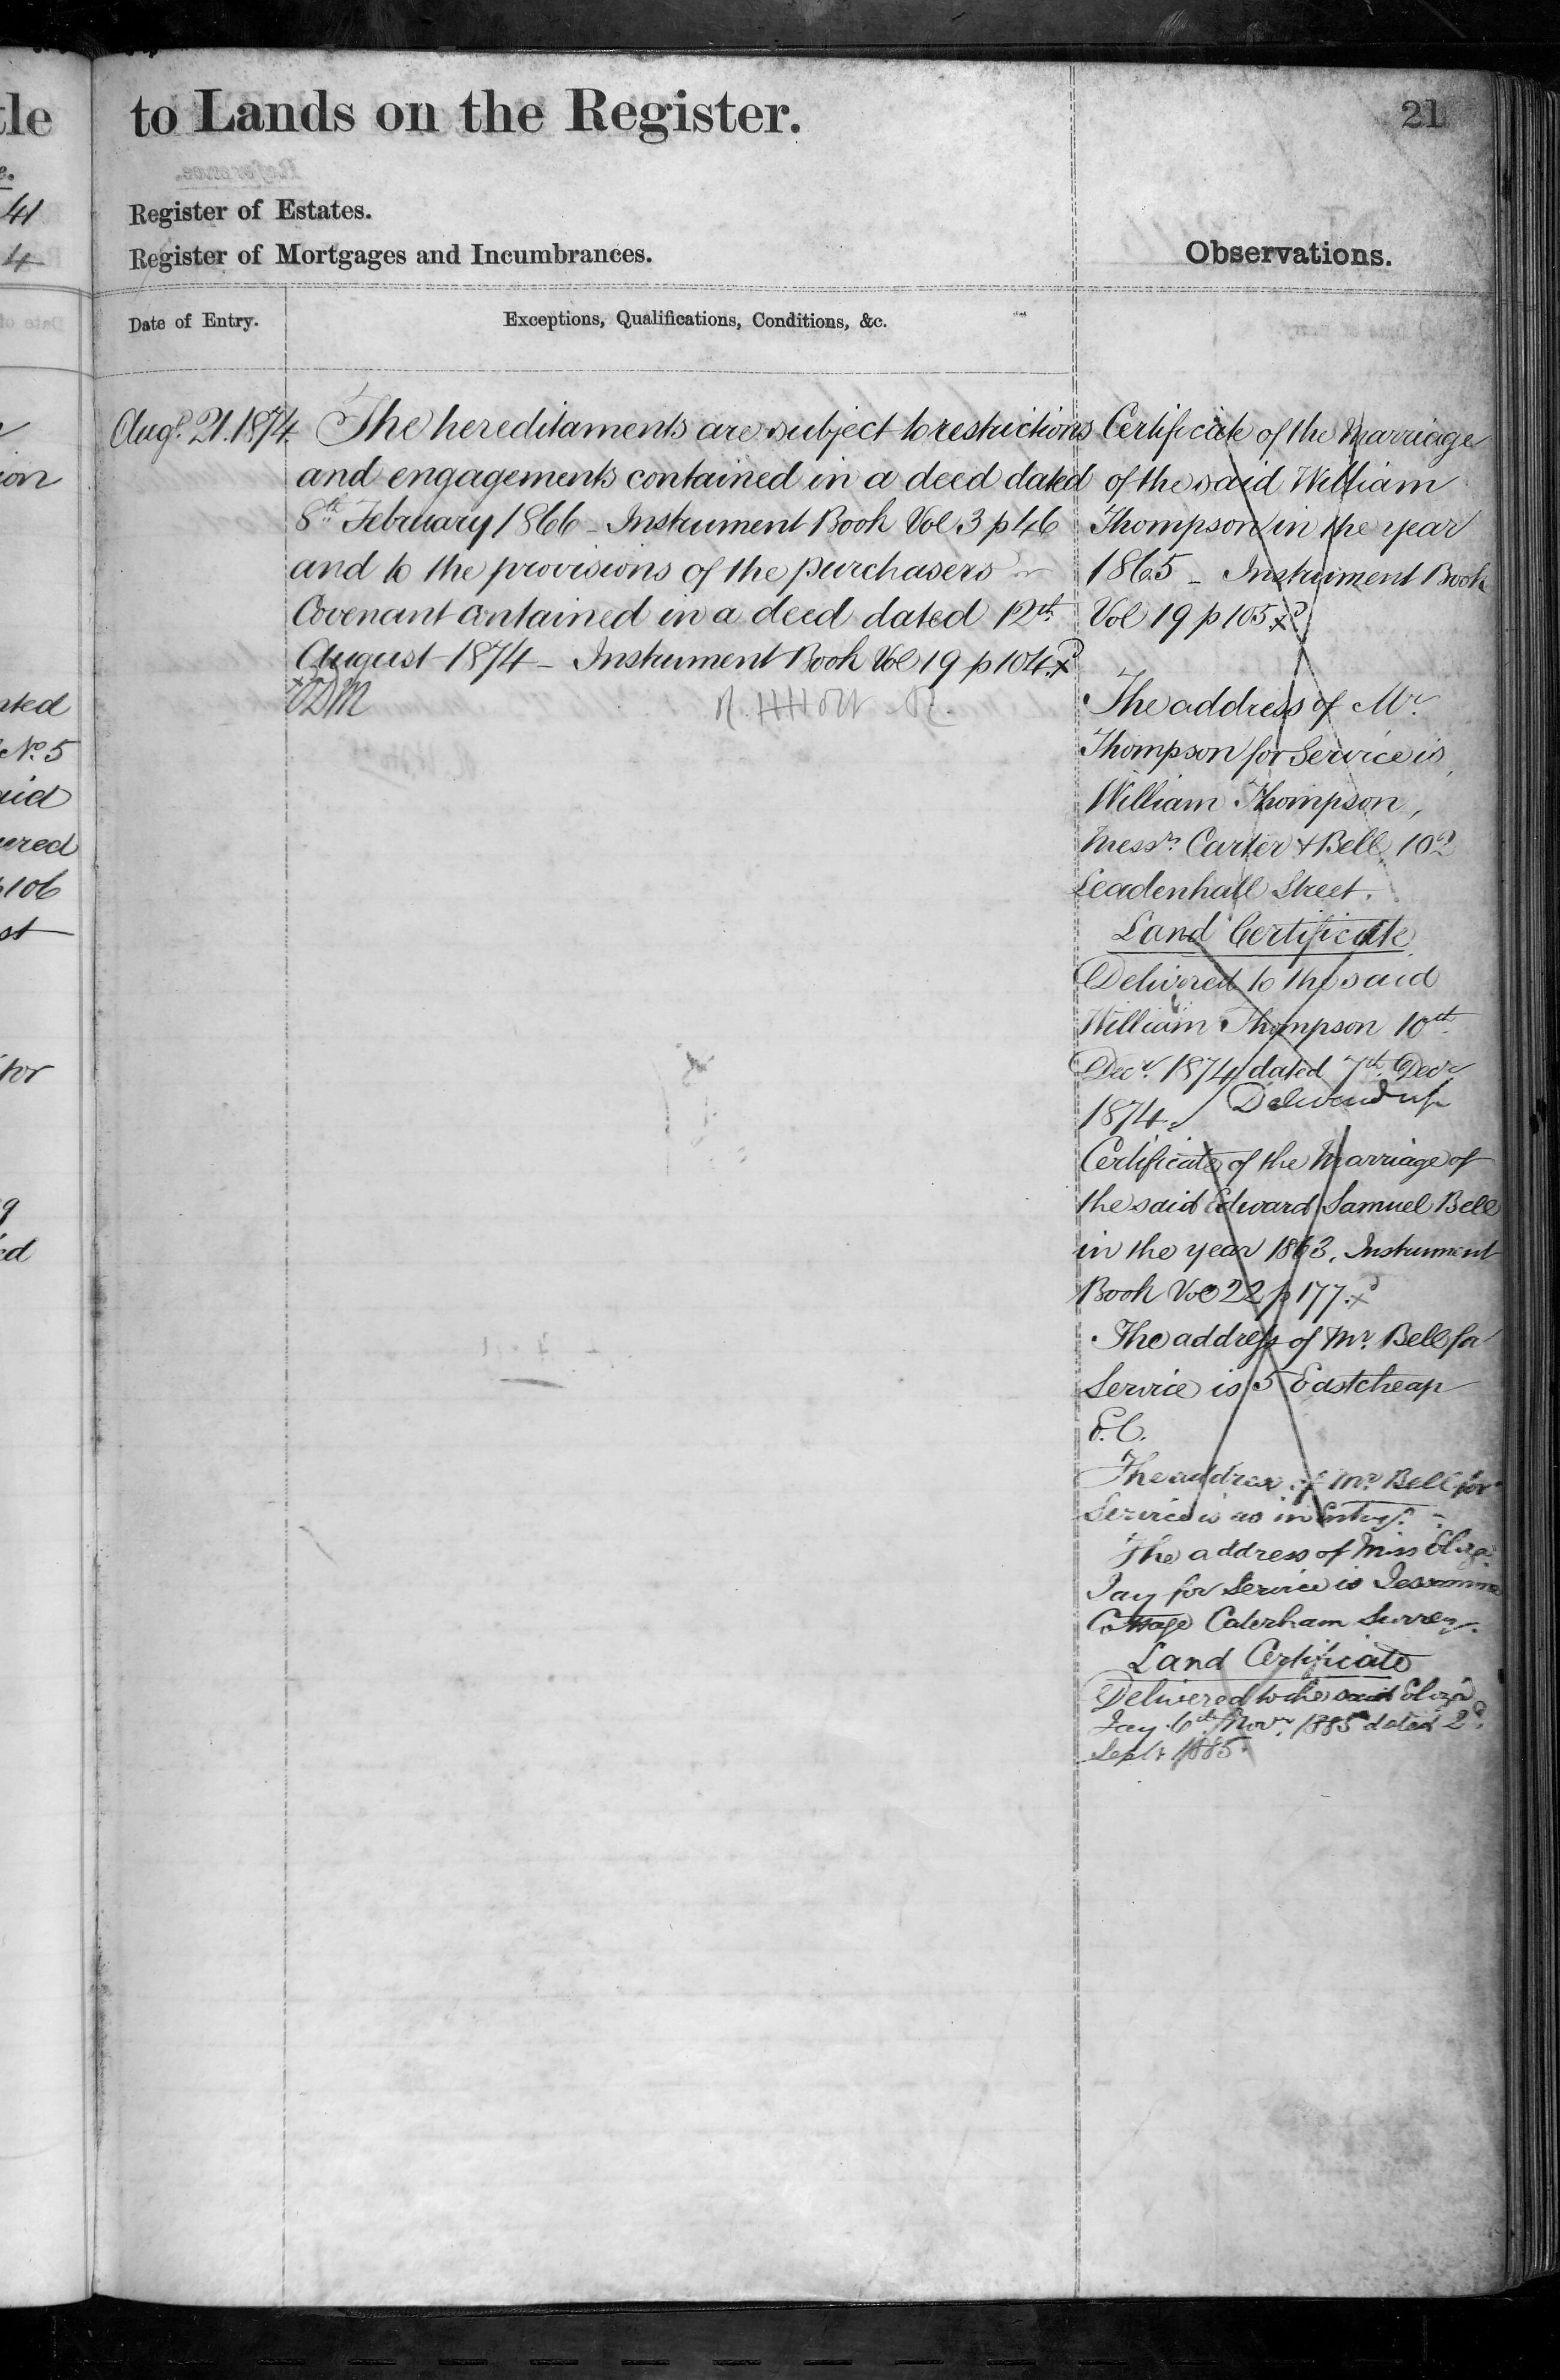 tle
to Lands on the Register.
21
e.
41
Register of Estates.
4
Register of Mortgages and Incumbrances.
Observations.
Date of Entry.
Exceptions, Qualifications, Conditions, &c.
Augt. 21. 1874
The hereditaments are subject to restrictions
and engagements contained in a deed dated
8th February 1866 - Instrument Book Vol 3 p 46
and to the provisions of the purchasers
Covenant contained in a deed dated 12th
August 1874 - Instrument Book Vol 19 p 104. xd
Certificate of the Marriage
of the said William
Thompson in the year
1865 - Instrument Book
Vol 19 p 105 xd
The address of Mr.
Thompson for Service is
William Thompson,
Messrs. Carter & Bell, 102
Leadenhall Street.
Land Certificate
Delivered to the said
William Thompson 10th
Decr. 1874 dated 7th Decr
1874. / Delivered up
Certificate of the Marriage of
the said Edward Samuel Bell
in the year 1863. Instrument
Book Vol 22 p 177. xd
The address of Mr. Bell for
Service is 5 Eastcheap
E.C.
The address of Mr. Bell for
Service is as in Entry.
The address of Miss Eliza
Jay for Service is Jessamine
Cottage Caterham Surrey.
Land Certificate
Delivered to the said Eliza
Jay 6th Novr. 1885 dated 2d.
Sept 1885.
ion
ated
No. 5
aid
ered
p 106
st
tor
9
ed